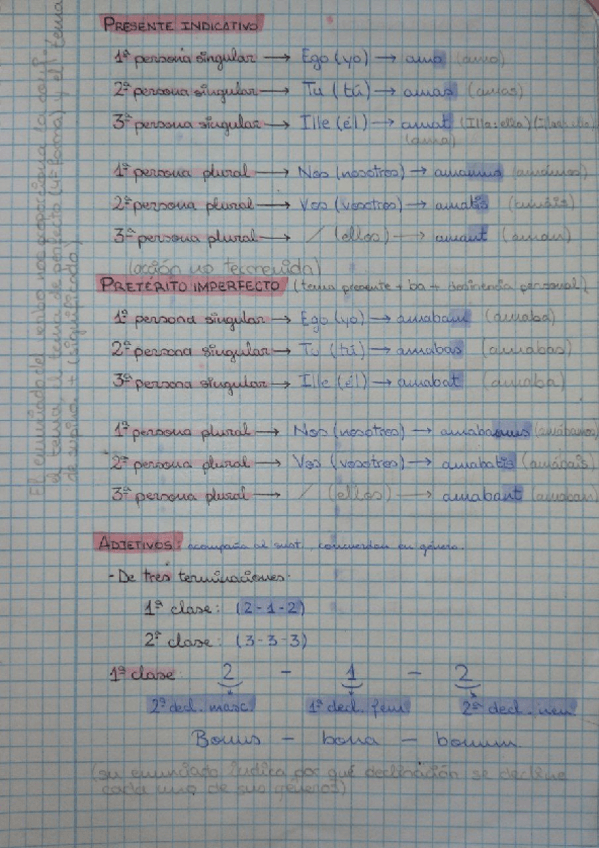 PRESENTE INDICATIVO
1ª persona singular → Ego (yo) → amo (amo)
2ª persona singular → Tú (tú) → amas (amas)
3ª persona singular → Ille (él) → amat (Illa: ella)
(ama)
1ª persona plural → Nos (nosotros) → amamus (amamos)
2ª persona plural → Vos (vosotros) → amatis (amáis)
3ª persona plural → / (ellos) → amant (aman)
(acción no terminada)
PRETÉRITO IMPERFECTO (tema presente + ba + desinencia personal)
1ª persona singular → Ego (yo) → amabam (amaba)
2ª persona singular → Tú (tú) → amabas (amabas)
3ª persona singular → Ille (él) → amabat (amaba)
1ª persona plural → Nos (nosotros) → amabamus (amábamos)
2ª persona plural → Vos (vosotros) → amabatis (amábais)
3ª persona plural → / (ellos) → amabant (amaban)
ADJETIVOS: acompaña al sust., concuerdan en género.
- De tres terminaciones:
1ª clase: (2-1-2)
2ª clase: (3-3-3)
1ª clase: 2 - 1 - 2
2ª decl. masc 1ª decl. fem 2ª decl. neu
Bonus - bona - bonum
(su enunciado indica por qué declinación se declina
cada uno de sus géneros)
El enunciado del verbo nos proporciona la conj.
el tema, el tema de perfecto (4ª forma) y el tema
de supino. + (significado)